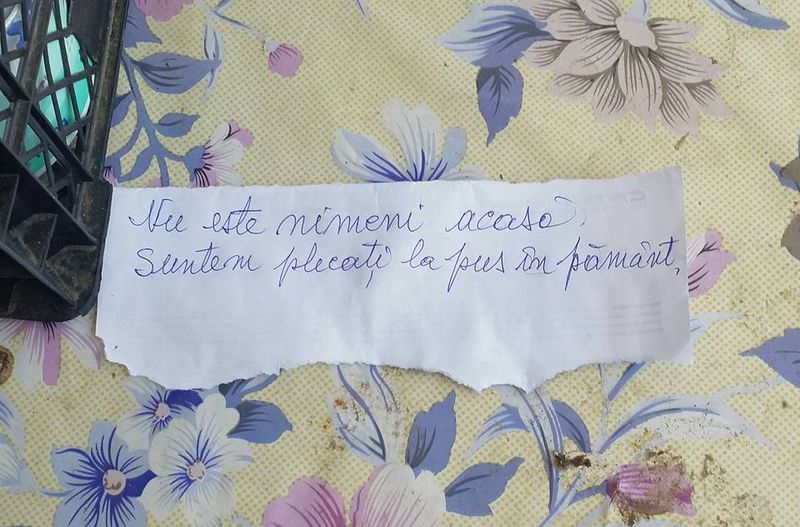 Nu este nimeni acasă,
Suntem plecați la pus în pământ,